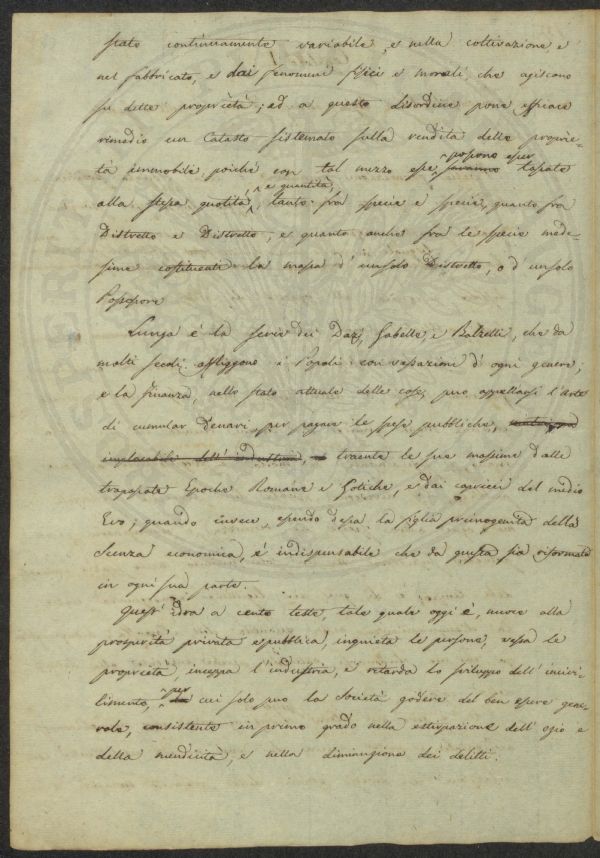 stato continuamente variabile, e nella coltivazione, e
nel fabbricato, e dai fenomeni fisici e morali, che agiscono
su dette proprietà; ed a questo disordine pone efficace
rimedio un Catasto sistemato sulla rendita delle proprie-
tà immobili, poichè con tal mezzo esse possono esser saranno tassate
alla stessa quotità e quantità, tanto frà specie e specie, quanto frà
Distretto e Distretto, e quanto anche frà le specie mede-
sime costituenti la massa d'un solo Distretto, o d'un solo
Possessore
Lunga è la serie dei Dazj, Gabelle, e Balzelli, che da
molti secoli affliggono i Popoli con vessazioni d'ogni genere;
e la finanza, nello stato attuale delle cose, può appellarsi l'arte
di cumular denari, per pagare le spese pubbliche,
implacabile dell'industria, traente le sue massime dalle
trapassate Epoche Romane e Gotiche, e dai capricci del medio
Evo; quando invece, essendo dessa la figlia primogenita della
Scienza economica, è indispensabile che da questa sia riformata
in ogni sua parte.
Quest'idra a cento teste, tale quale oggi è, nuoce alla
prosperità privata e pubblica, inquieta le persone, vessa le
proprietà, inceppa l'industria, e ritarda lo sviluppo dell'incivi-
limento, per cui solo può la Società godere del ben essere gene-
rale, consistente in primo grado nella estirpazione dell'ozio e
della mendicità, e nella diminuzione dei delitti.